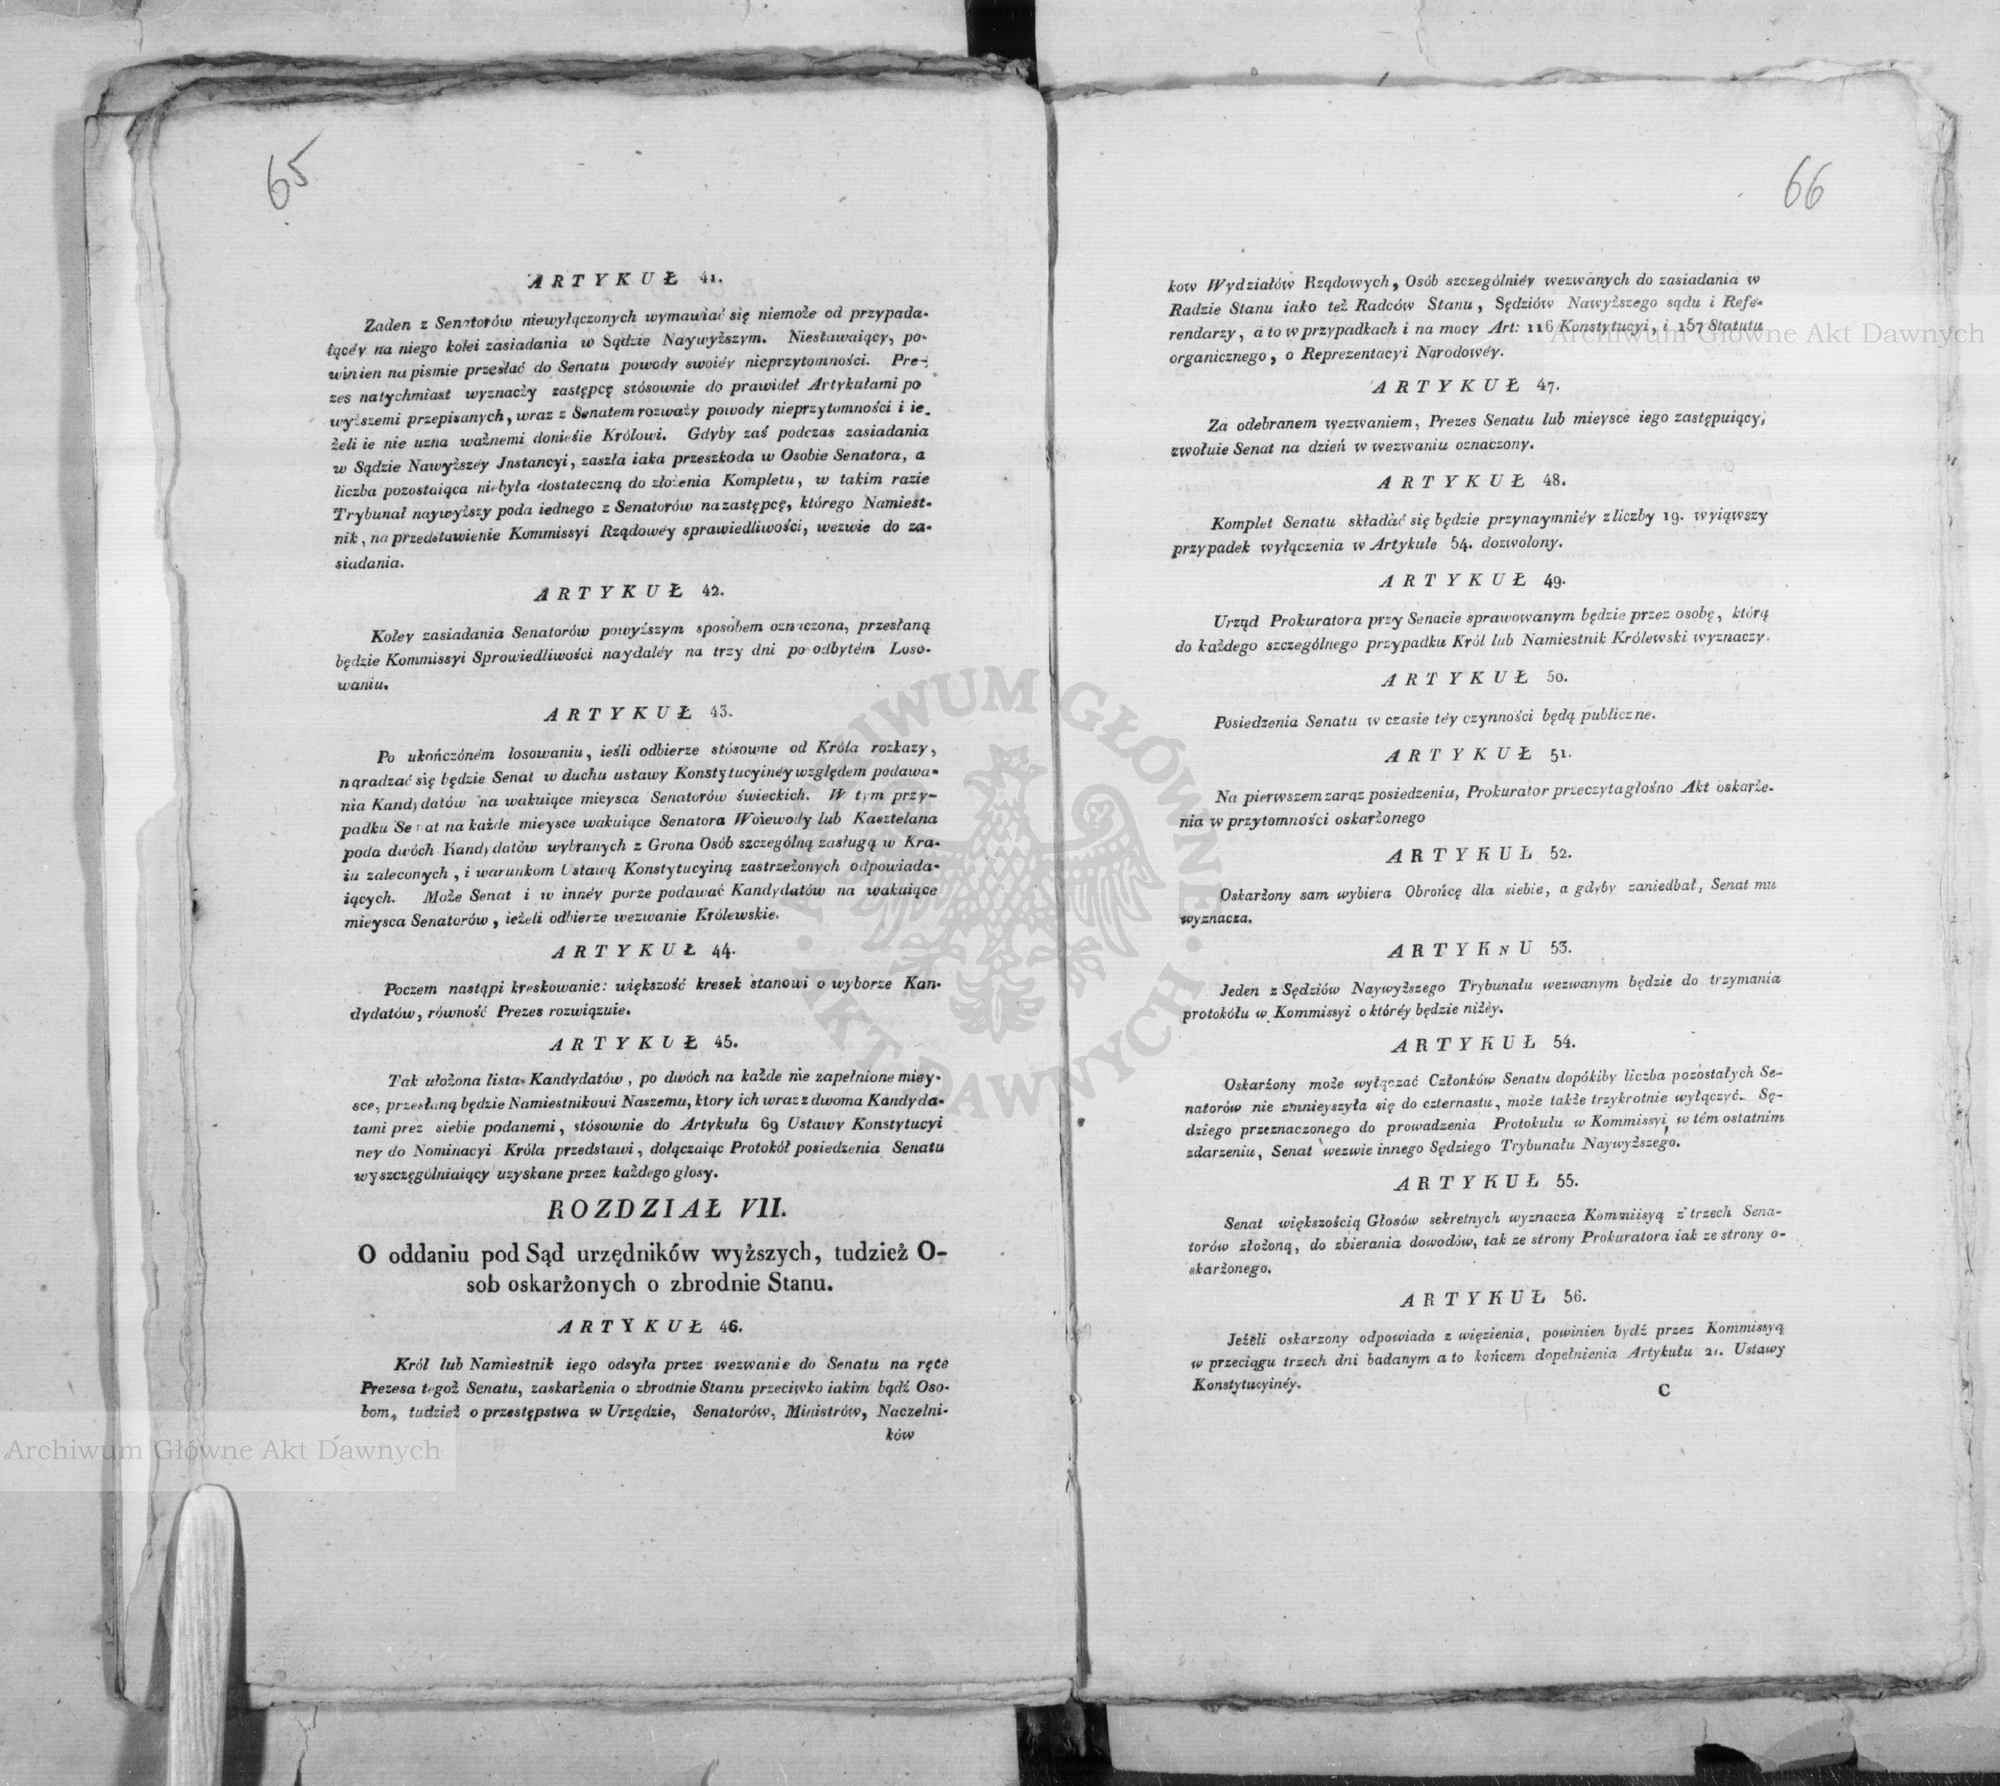 65
ARTYKUŁ 41.
Zaden z Senatorów niewyłączonych wymawiać się niemoże od przypada-
łącéy na niego kolei zasiadania w Sądzie Naywyższym. Niestawaiący, po-
winien na pismie przesłać do Senatu powody swoiéy nieprzytomności. Pre-
zes natychmiast wyznaczy zastępcę stósownie do prawideł Artykułami po
wyższemi przepisanych, wraz z Senatem rozważy powody nieprzytomności i ie.
żeli ie nie uzna ważnemi doniesie Królowi. Gdyby zaś podczas zasiadania
w Sądzie Nawyższey Jnstancyi, zaszła iaka przeszkoda w Osobie Senatora, a
liczba pozostaiąca niebyła dostateczną do złożenia Kompletu, w takim razie
Trybunał naywyższy poda iednego z Senatorów na zastępcę, którego Namiest-
nik, na przedstawienie Kommissyi Rządowéy sprawiedliwości, wezwie do za-
siadania.
ARTYKUŁ 42.
Koley zasiadania Senatorów powyższym sposobem oznaczona, przesłaną
będzie Kommissyi Sprowiedliwości naydaléy na trzy dni po odbytém Loso-
waniu.
ARTYKUŁ 43.
Po ukończóném losowaniu, ieśli odbierze stósowne od Króla rozkazy,
naradzać się będzie Senat w duchu ustawy Konstytucyinéy względem podawa-
nia Kandydatów na wakuiące mieysca Senatorów świeckich. W tym przy-
padku Senat na każde mieysce wakuiące Senatora Woiewody lub Kasztelana
poda dwóch Kandydatów wybranych z Grona Osób szczególną zasługą w Kra-
iu zaleconych, i warunkom Ustawą Konstytucyiną zastrzeżonych odpowiada-
iących. Może Senat i w innéy porze podawać Kandydatów na wakuiące
mieysca Senatorów, ieżeli odbierze wezwanie Królewskie.
ARTYKUŁ 44.
Poczem nastąpi kreskowanie: większość kresek stanowi o wyborze Kan-
dydatów, równość Prezes rozwiązuie.
ARTYKUŁ 45.
Tak ułożona lista Kandydatów, po dwóch na każde nie zapełnione miey-
sce, przesłaną będzie Namiestnikowi Naszemu, ktory ich wraz z dwoma Kandyda-
tami prez siebie podanemi, stósownie do Artykułu 69 Ustawy Konstytucyi
ney do Nominacyi Króla przedstawi, dołączaiąc Protokół posiedzenia Senatu
wyszczególniaiący uzyskane przez każdego głosy.
ROZDZIAŁ VII.
O oddaniu pod Sąd urzędników wyższych, tudzież O-
sob oskarżonych o zbrodnie Stanu.
ARTYKUŁ 46.
Król lub Namiestnik iego odsyła przez wezwanie do Senatu na ręce
Prezesa tegoż Senatu, zaskarżenia o zbrodnie Stanu przeciwko iakim bądź Oso-
bom, tudzież o przestępstwa w Urzędzie, Senatorów, Ministrów, Naczelni-
ków
66
kow Wydziałów Rządowych, Osób szczególniéy wezwanych do zasiadania w
Radzie Stanu iako też Radców Stanu, Sędziów Nawyższego sądu i Refe-
rendarzy, a to w przypadkach i na mocy Art: 116 Konstytucyi, i 157 Statutu
organicznego, o Reprezentacyi Narodowéy.
ARTYKUŁ 47.
Za odebranem wezwaniem, Prezes Senatu lub mieysce iego zastępuiący,
zwołuie Senat na dzień w wezwaniu oznaczony.
ARTYKUŁ 48.
Komplet Senatu składać się będzie przynaymniéy z liczby 19. wyiąwszy
przypadek wyłączenia w Artykule 54. dozwolony.
ARTYKUŁ 49.
Urząd Prokuratora przy Senacie sprawowanym będzie przez osobę, którą
do każdego szczególnego przypadku Król lub Namiestnik Królewski wyznaczy.
ARTYKUŁ 50.
Posiedzenia Senatu w czasie téy czynności będą publiczne.
ARTYKUŁ 51.
Na pierwszem zaraz posiedzeniu, Prokurator przeczyta głośno Akt oskarże-
nia w przytomności oskarżonego
ARTYKUŁ 52.
Oskarżony sam wybiera Obrońcę dla siebie, a gdyby zaniedbał, Senat mu
wyznacza.
ARTYKNU 53.
Jeden z Sędziów Naywyższego Trybunału wezwanym będzie do trzymania
protokółu w Kommissyi o któréy będzie niżéy.
ARTYKUŁ 54.
Oskarżony może wyłączać Członków Senatu dopókiby liczba pozostałych Se-
natorów nie zmnieyszyła się do czternastu, może także trzykrotnie wyłączyć. Sę-
dziego przeznaczonego do prowadzenia Protokułu w Kommissyi, w tém ostatnim
zdarzeniu, Senat wezwie innego Sędziego Trybunału Naywyższego.
ARTYKUŁ 55.
Senat większością Głosów sekretnych wyznacza Kommiisyą z trzech Sena-
torów złożoną, do zbierania dowodów, tak ze strony Prokuratora iak ze strony o-
skarżonego.
ARTYKUŁ 56.
Jeżeli oskarzony odpowiada z więzienia, powinien bydź przez Kommissyą
w przeciągu trzech dni badanym a to końcem dopełnienia Artykułu 21. Ustawy
Konstytucyinéy.
C
Archiwum Główne Akt Dawnych
Archiwum Główne Akt Dawnych
ARCHIWUM GŁÓWNE · AKT DAWNYCH ·